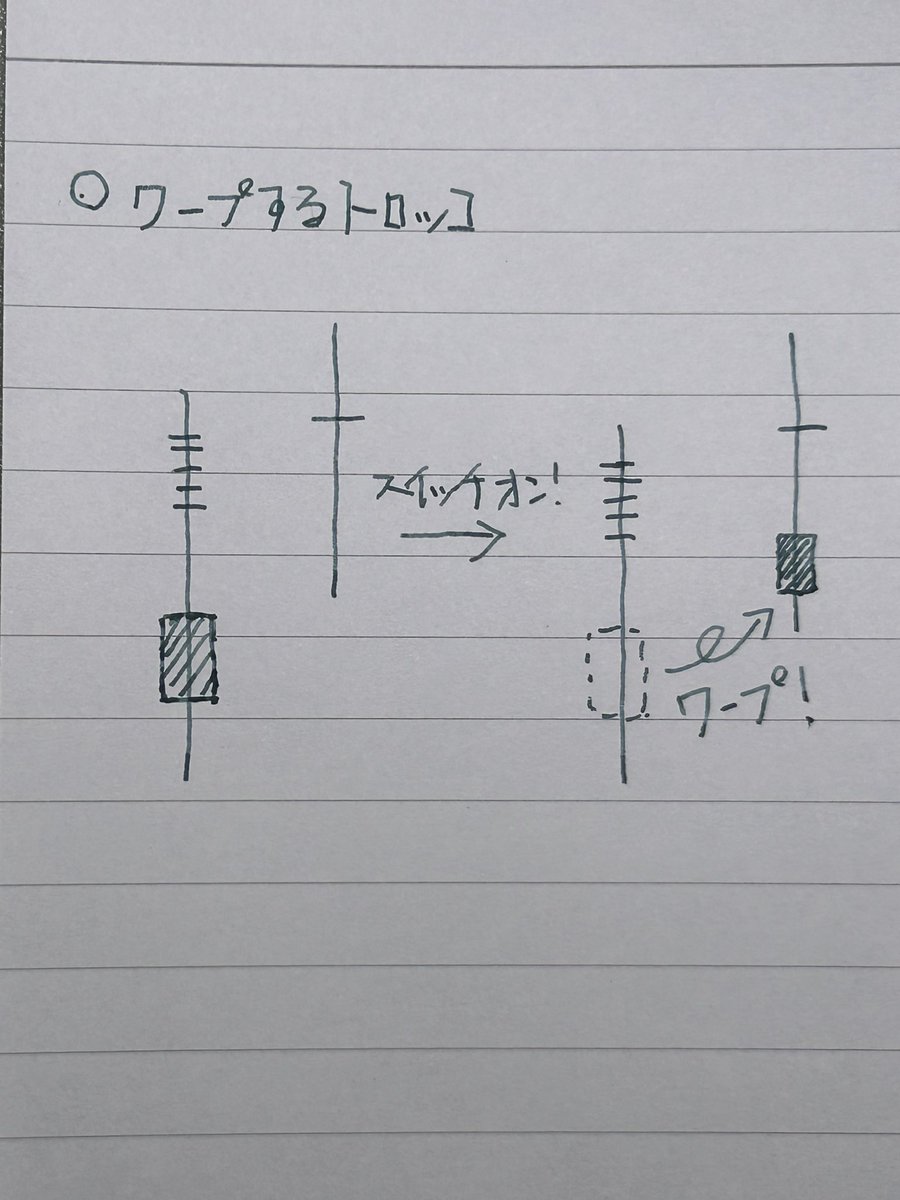 ○ ワープするトロッコ
スイッチオン!
ワープ!